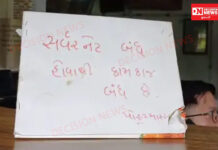 DN
DECISION NEWS
સર્વર નેટ બંધ
હોવાથી કામકાજ
બંધ છે.
DECISION NEWS